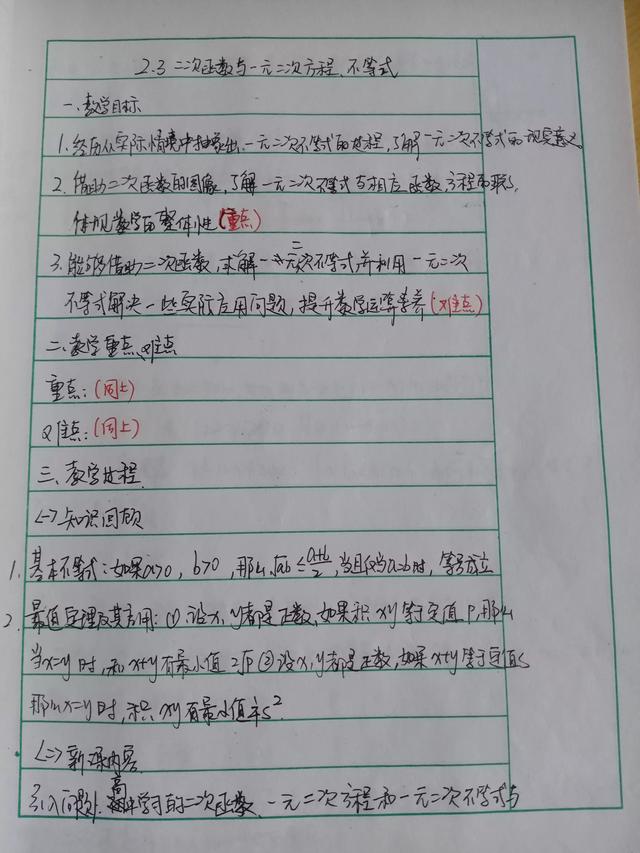 2.3 二次函数与一元二次方程、不等式
一.教学目标
1.经历从实际情境中抽象出一元二次不等式的过程,了解一元二次不等式的现实意义
2.借助二次函数的图象,了解一元二次不等式与相应函数、方程的联系,
体现数学的整体性(重点)
3.能够借助二次函数,求解一元二次不等式并利用一元二次
不等式解决一些实际应用问题,提升数学运算素养(难点)
二.教学重点、难点
重点:(同上)
难点:(同上)
三、教学过程
(一)知识回顾
1.基本不等式:如果a>0,b>0,那么√ab≤(a+b)/2,当且仅当a=b时,等号成立
2.最值定理及其应用:①设x,y都是正数,如果积xy等于定值P,那么
当x=y时,和x+y有最小值2√P②设x,y都是正数,如果x+y等于定值S
那么x=y时,积xy有最小值¼S²
(二)新课内容
引入问题1:高中学习的二次函数、一元二次方程和一元二次不等式与